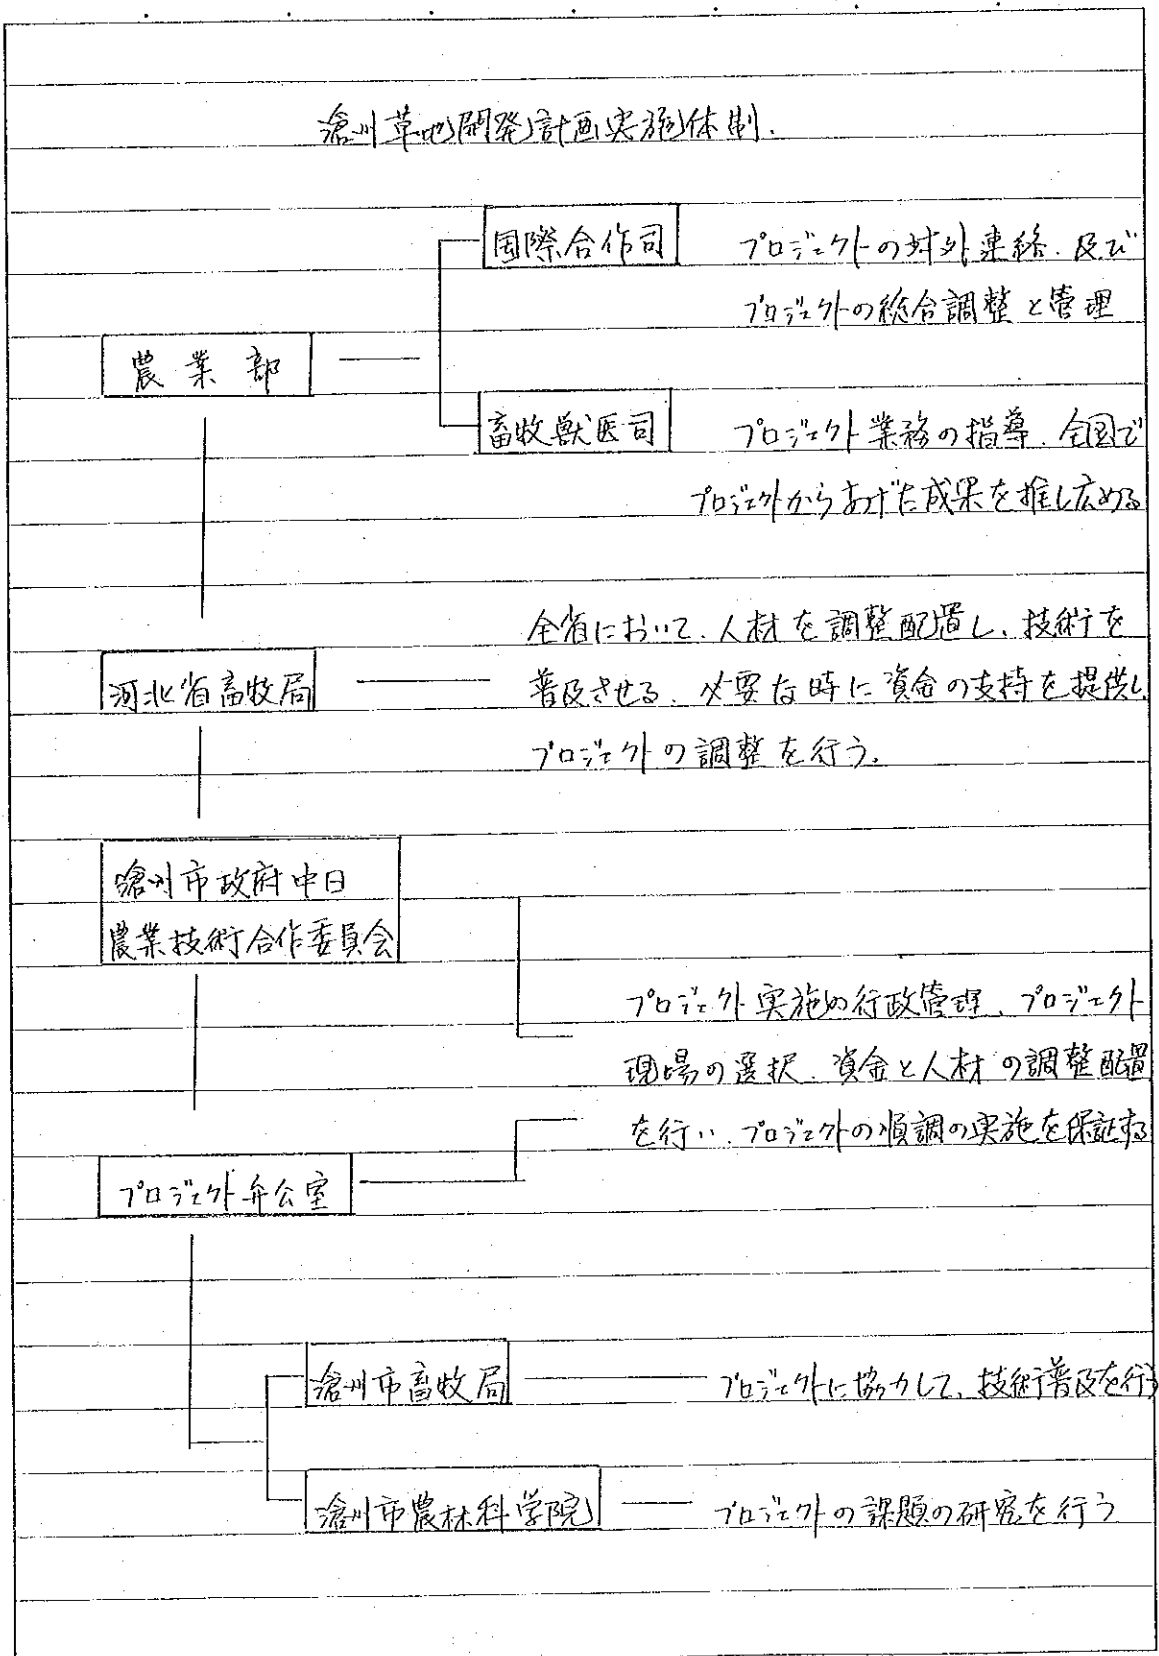 滄州草地開発計画実施体制.
国際合作司 プロジェクトの対外連絡、及び
プロジェクトの総合調整と管理
農業部
畜牧獣医司 プロジェクト業務の指導、全国で
プロジェクトからあげた成果を推し広める
全省において、人材を調整配置し、技術を
河北省畜牧局 普及させる、必要な時に資金の支持を提供し
プロジェクトの調整を行う。
滄州市政府中日
農業技術合作委員会
プロジェクト実施的行政管理、プロジェクト
現場の選択、資金と人材の調整配置
を行い、プロジェクトの順調の実施を保証する
プロジェクト弁公室
滄州市畜牧局 プロジェクトに協力して、技術普及を行う
滄州市農林科学院 プロジェクトの課題の研究を行う